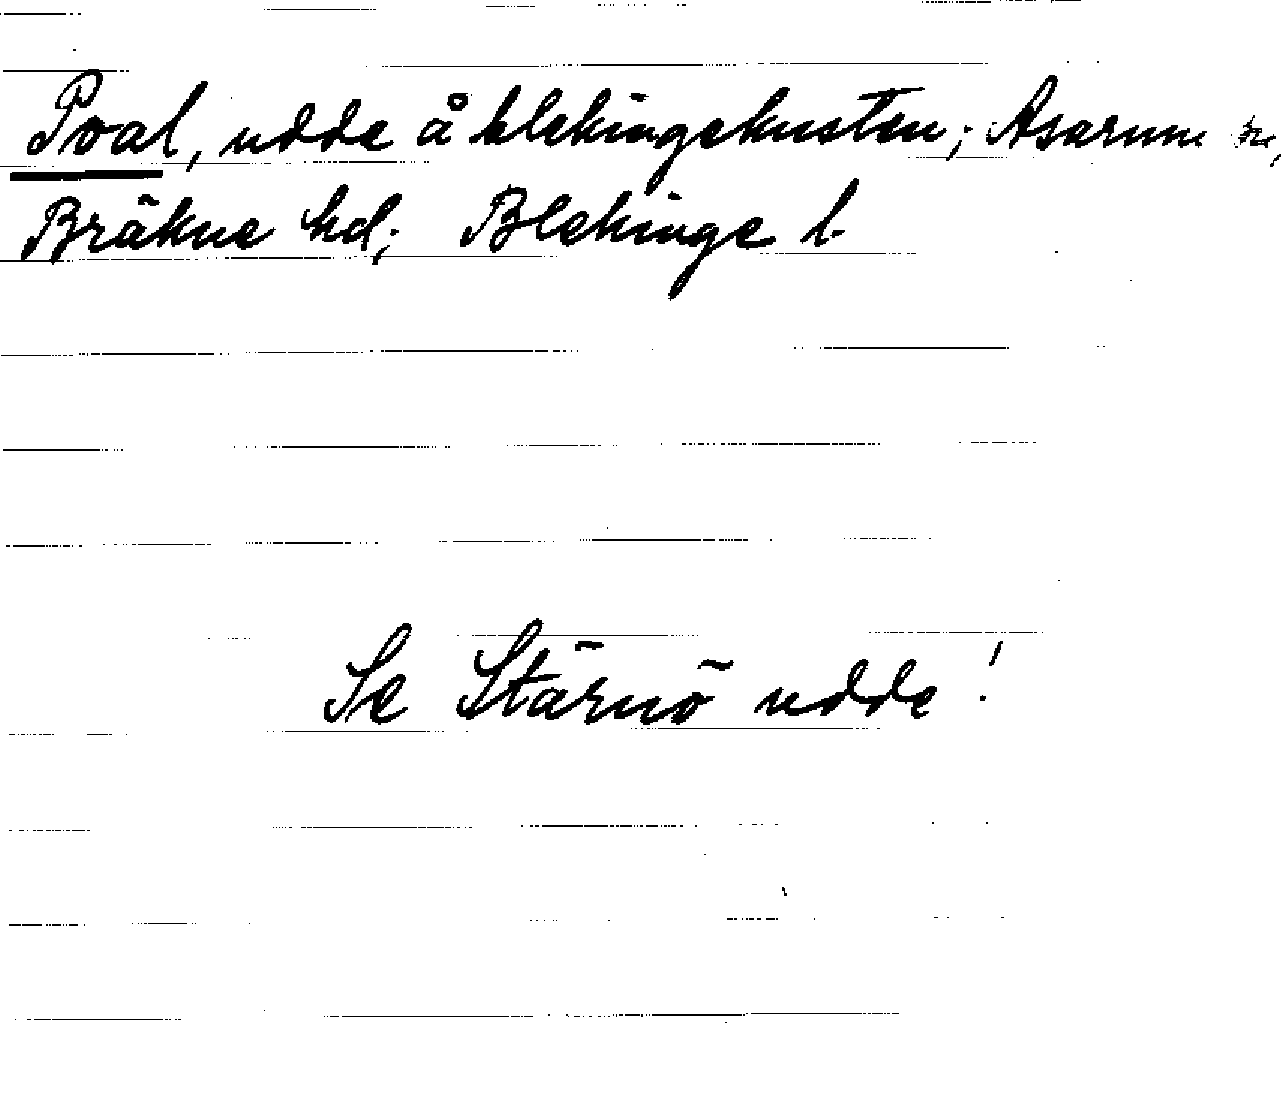 Pval, udde å blekingekusten; Asarum sn,
Bräkne hd; Blekinge l.
Se Stärnö udde!